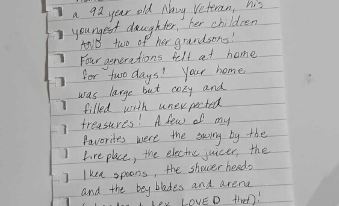 a 92 year old Navy Veteran, his
youngest daughter, her children
AND two of her grandsons!
Four generations felt at home
for two days! Your home
was large but cozy and
filled with unexpected
treasures! A few of my
favorites were the swing by the
fireplace, the electric juicer, the
Ikea spoons, the shower heads
and the bey blades and arena
LOVED that)!